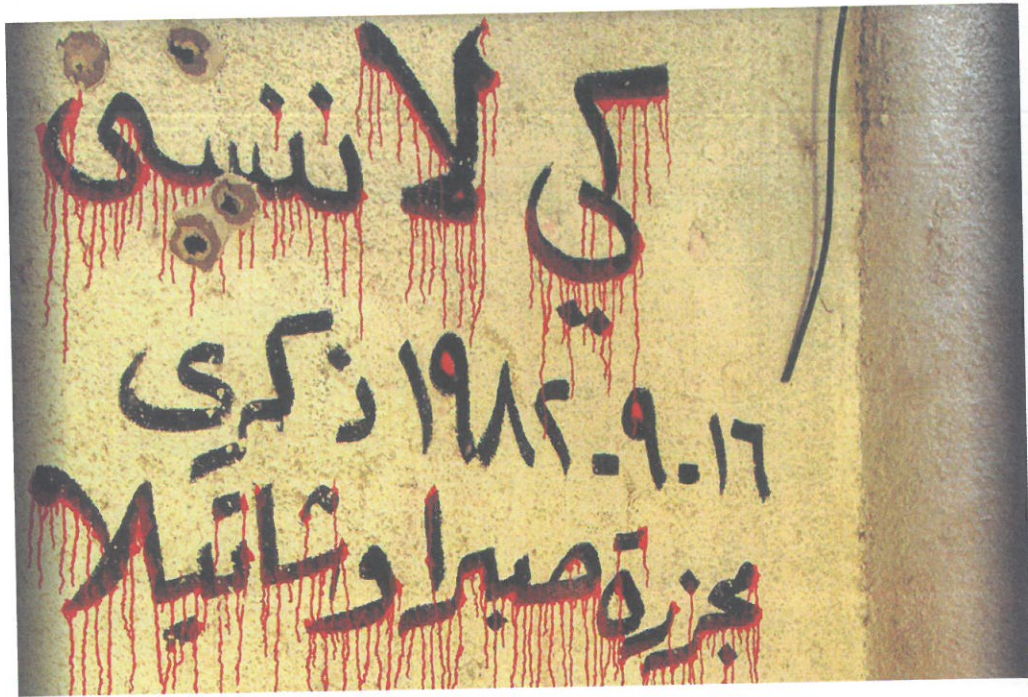 كي لا ننسى
١٦.٩.١٩٨٢ ذكرى
مجزرة صبرا وشاتيلا